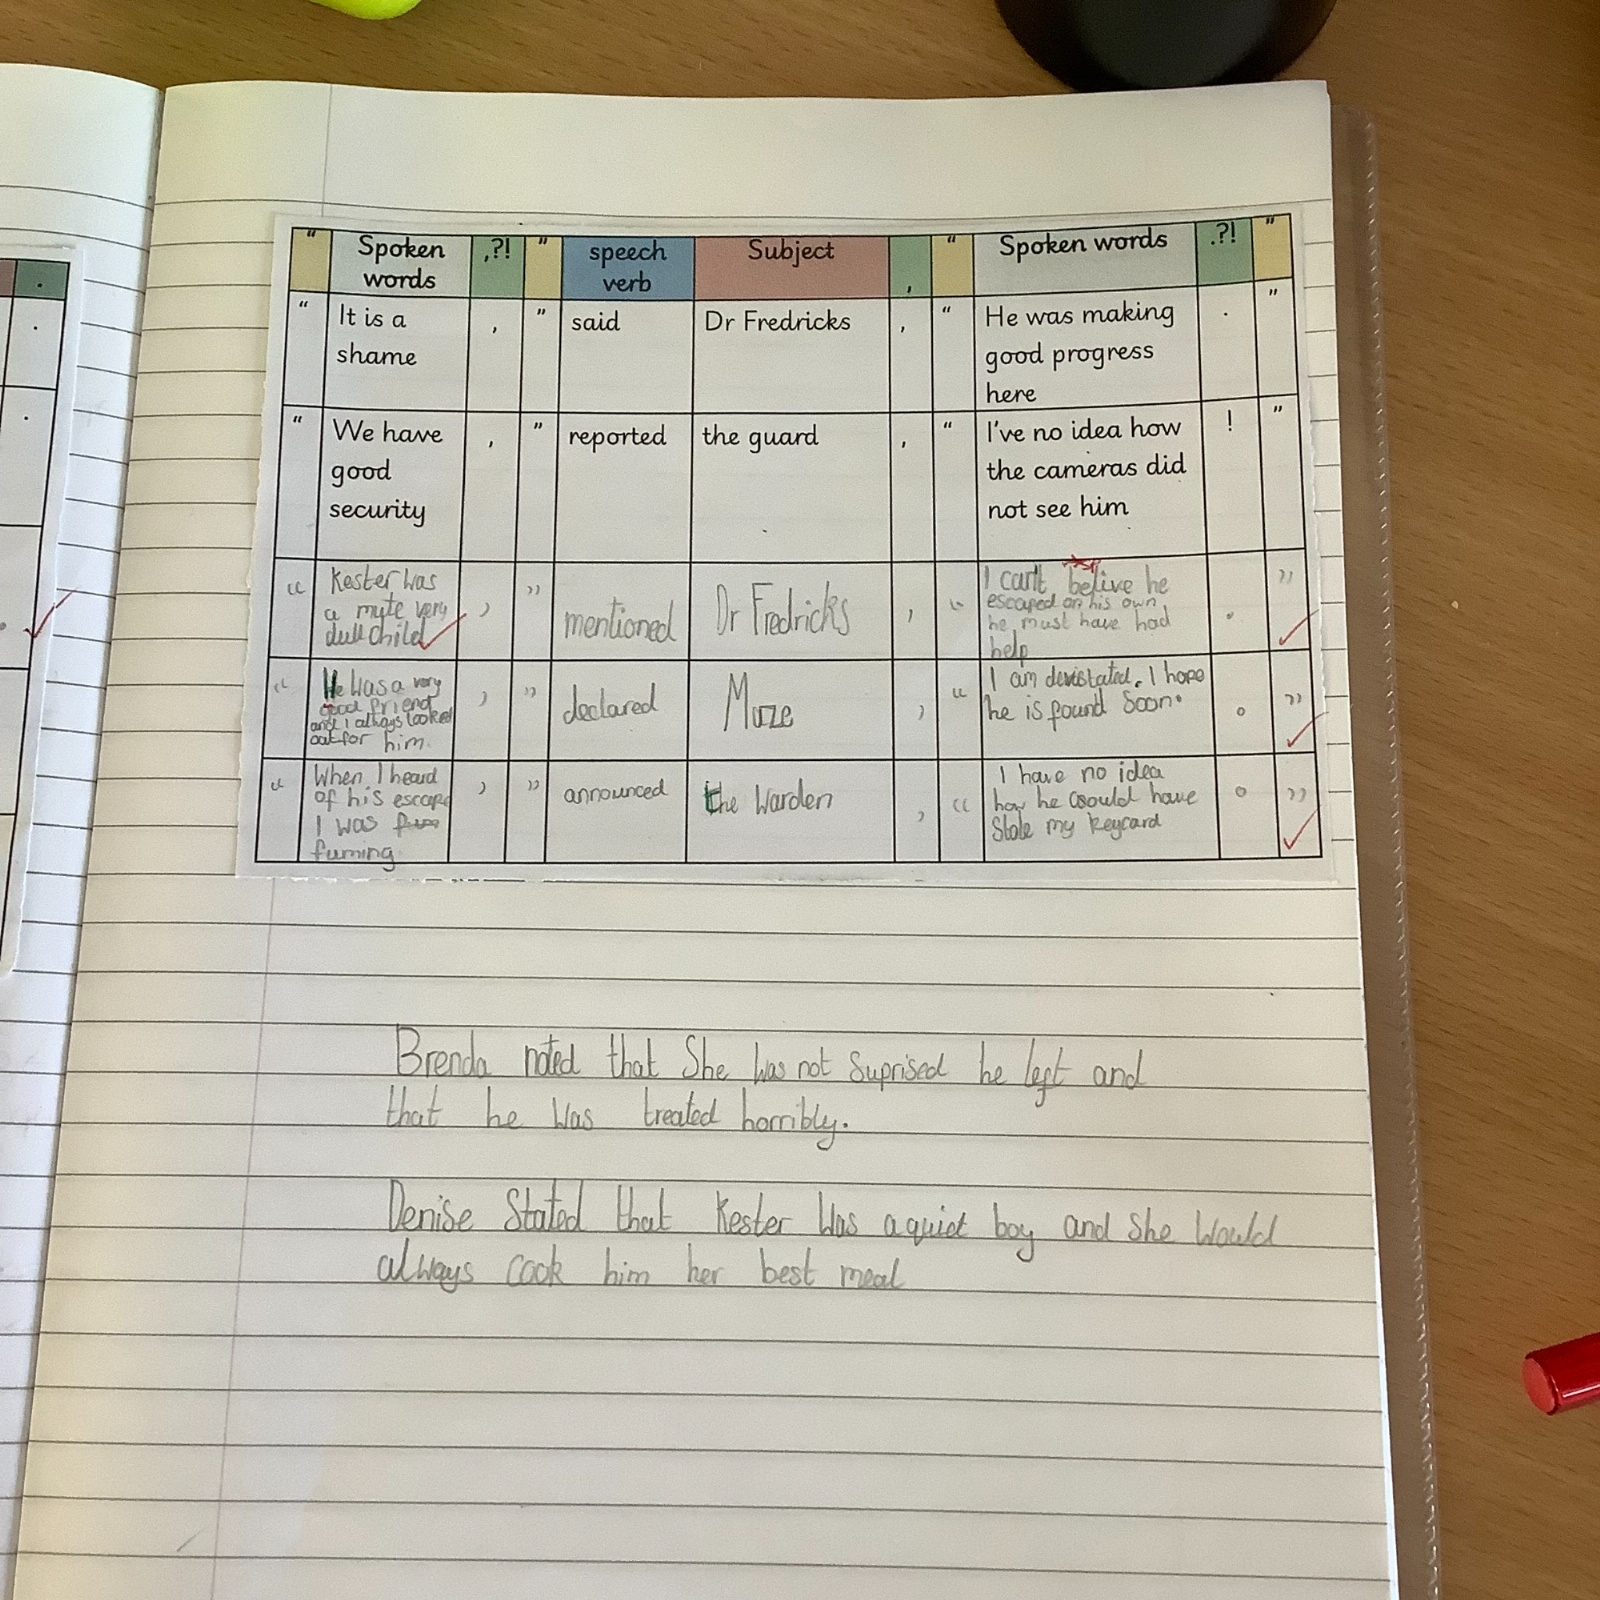 " Spoken words ,?! " speech verb Subject , " Spoken words .?! "
" It is a shame , " said Dr Fredricks , " He was making good progress here . "
" We have good security , " reported the guard , " I've no idea how the cameras did not see him ! "
" Kester was a mute very dull child , " mentioned Dr Fredricks , " I can't belive he escaped on his own he must have had help . "
" He was a very good friend and i always looked out for him. , " declared Maze , " I am devistated. I hope he is found Soon. . "
" When I heard of his escape I was fuming. , " announced the Warden , " I have no idea how he could have Stole my keycard . "
Brenda noted that She was not Suprised he left and
that he was treated horribly.
Denise Stated that Kester was a quiet boy and She would
always cook him her best meal